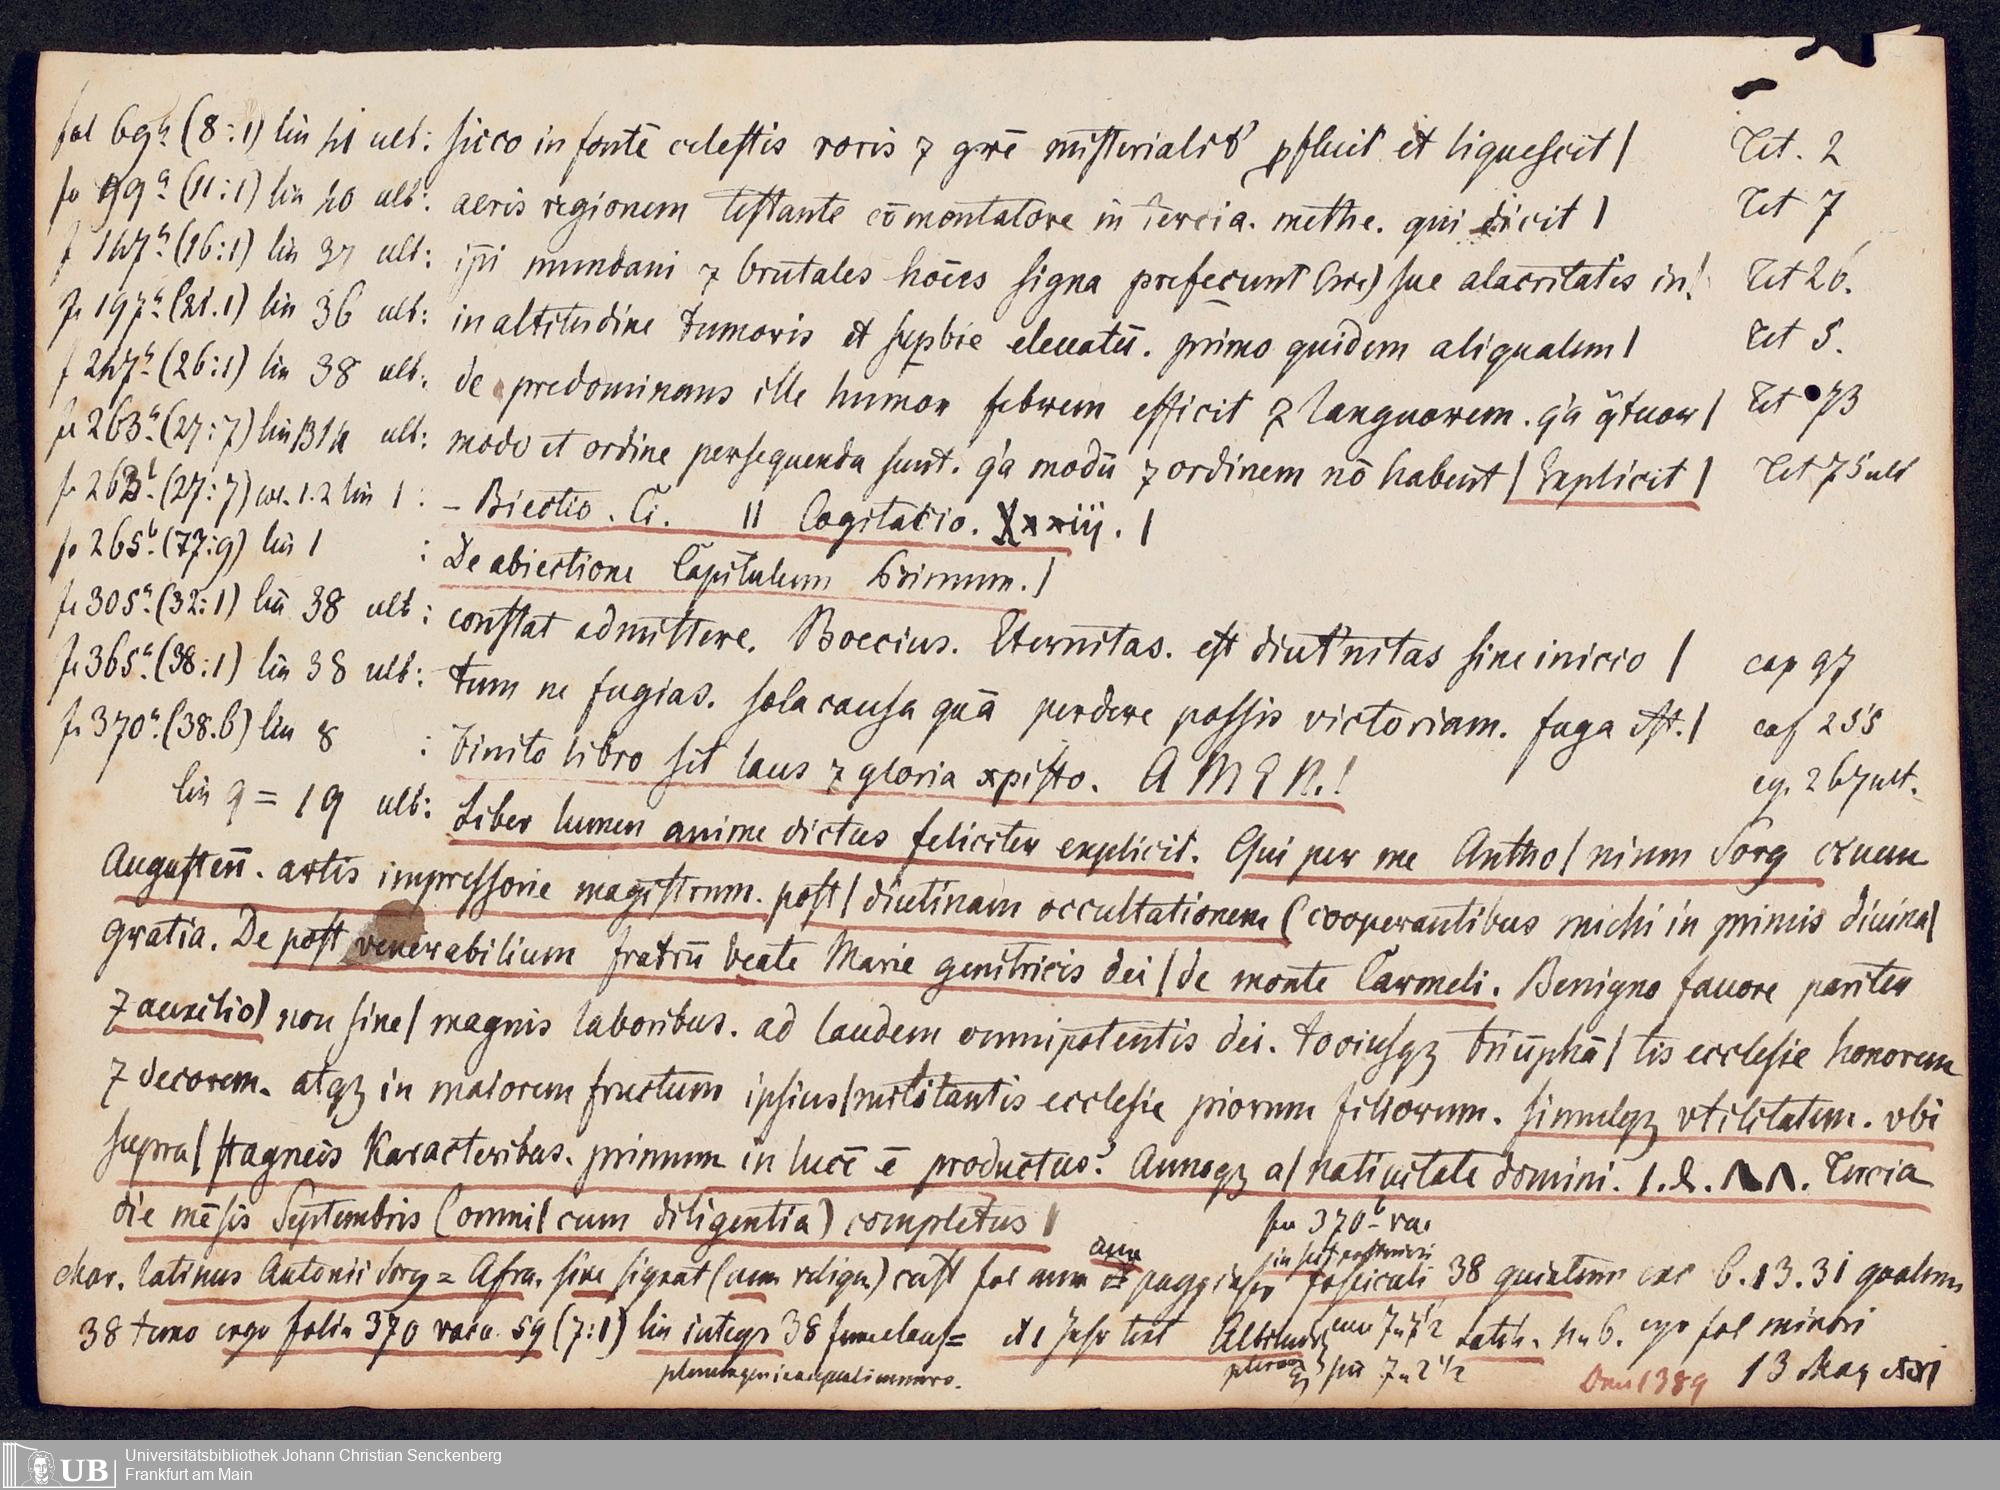 fol 69ᵃ (8:1) lin 41 ult: sicco in fonte celestis roris ⁊ gr̄e misterialit' ꝓfluit et liquescit | Tit. 2
fo 99ᵃ (11:1) lin 40 ult: aeris regionem testante cōmentatore in tercia. methe. qui dicit | Tit 7
f 147ᵃ (16:1) lin 37 ult: ip̄i mundani ⁊ brutales hoīes signa preferunt (sic) sue alacritatis in| Tit 26.
fo 197ᵃ (21.1) lin 36 ult: in altitudine tumoris et suꝑbie eleuatū. primo quidem aliqualem | Tit 5.
f 247ᵃ (26:1) lin 38 ult: de predominans ille humor febrem efficit ⁊ languorem. q'a q̄tuor | Tit 73
fo 263ᵃ (27:7) lin 14 ult: modo et ordine persequenda sunt. q'a modū ⁊ ordinem nō habent | Explicit | Tit 75 ult
fo 263ᵇ (27:7) col. 1.2 lin 1: – Biectio. Ci. || Cogitacio. Xxxiij. |
fo 265ᵇ (27:9) lin 1 : De abiectione Capitulum Primum. |
fo 305ᵃ (32:1) lin 38 ult: constat admittere. Boecius. Eternitas. est diut'nitas sine inicio | cap 97
fo 365ᵃ (38:1) lin 38 ult: tum ne fugias. sola causa quā perdere possis victoriam. fuga est. | cap 255
fo 370ᵃ (38.6) lin 8 : Finito libro sit laus ⁊ gloria xpisto. AMEN. | 267 ult.
lin 9 = 19 ult: Liber lumen anime dictus feliciter explicit. Qui per me Antho | nium Sorg ciuem
Augusten̄. artis impressorie magistrum. post | diutinam occultationem (cooperantibus michi in primis diuina |
gratia. De post venerabilium fratrū beate Marie genitricis dei | de monte Carmeli. Benigno fauore pariter
⁊ auxilio) non sine | magnis laboribus. ad laudem omnipotentis dei. tociusqꝫ triūphā | tis ecclesie honorem
⁊ decorem. atqꝫ in maiorem fructum ipsius | militantis ecclesie piorum filiorum. simulqꝫ vtilitatem. vbi
supra | stagneis karacteribus. primum in lucē ē productus. Annoqꝫ a | natiuitate domini. 1.4.77. Tercia
die mēsis Septembris (omni | cum diligentia) completus |
fo 370ᵇ vac.
Char. latinus Antonii Sorg = Afra. sine signat (cum reliqu) cust fol num et paggg fasciculi 38 6.13.31
38 terno ergo folia 370 vaca. 59 (7:1) lin integr 38 13 Mag
Universitätsbibliothek Johann Christian Senckenberg
Frankfurt am Main
UB